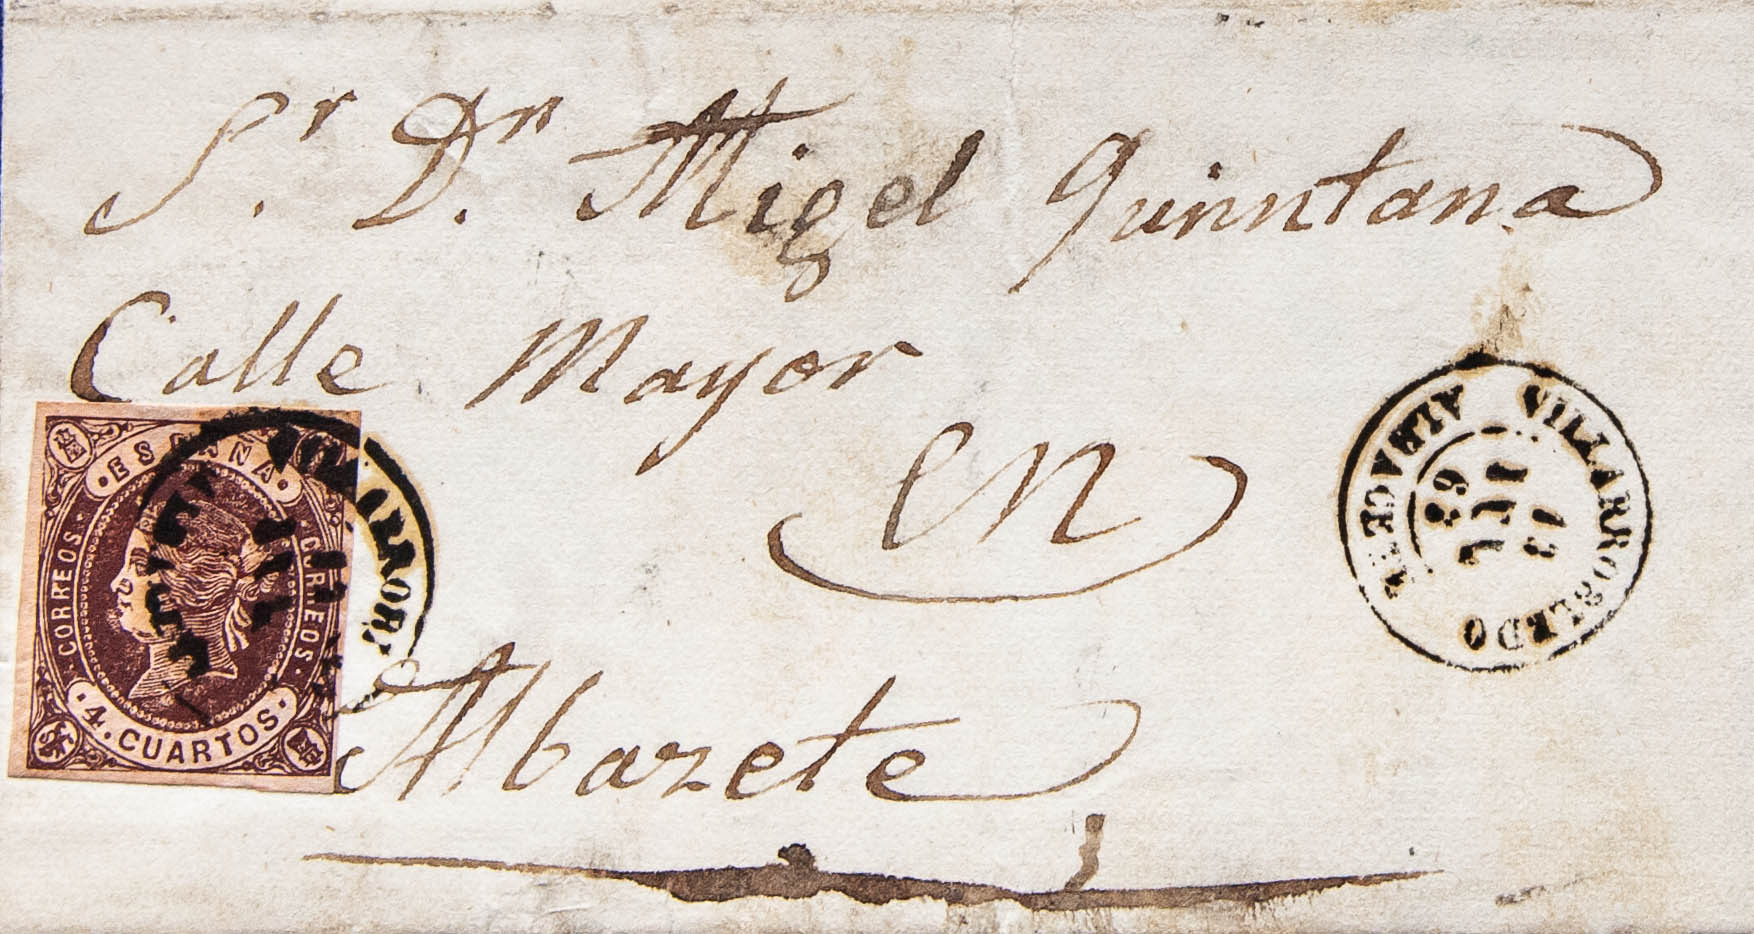 Sr. Dn. Migel Quinntana
Calle Mayor
en
Albazete
ESPAÑA
CORREOS
CORREOS
4. CUARTOS
VILLARROBLEDO
ALBACETE
12
JUL
63